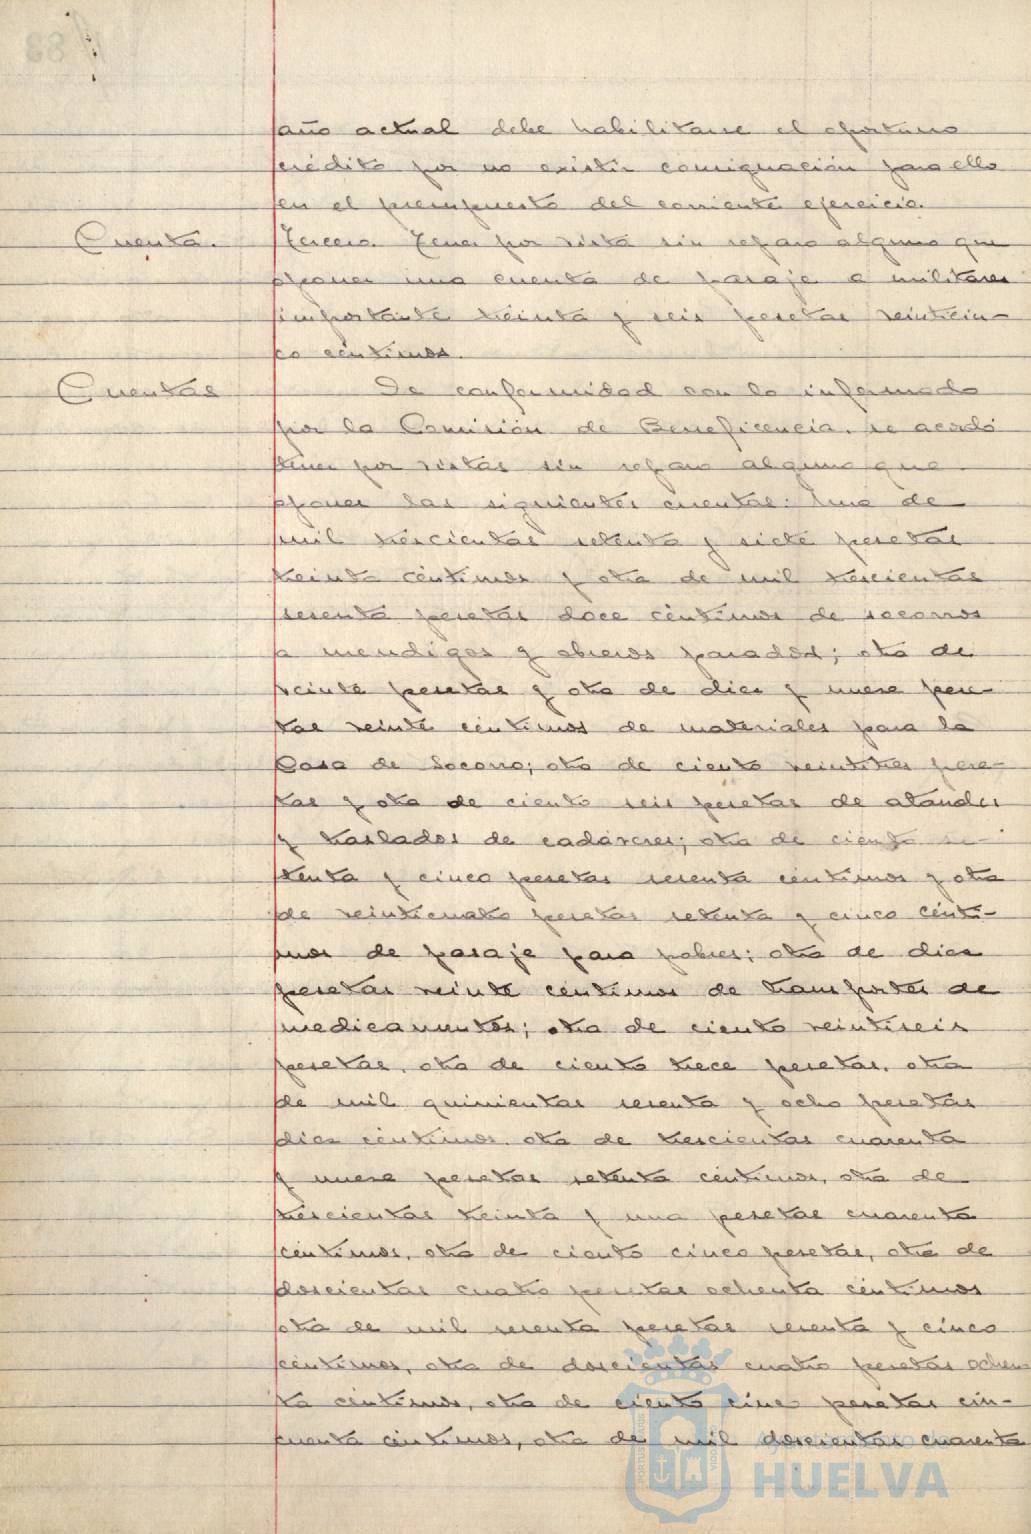 año actual debe habilitarse el oportuno
crédito por no existir consignación para ello
en el presupuesto del corriente ejercicio.
Cuenta.
Tercero. Tener por vista sin reparo alguno que
oponer una cuenta de pasaje a militares
importante treinta y seis pesetas veinticin-
co céntimos.
Cuentas
De conformidad con lo informado
por la Comisión de Beneficencia, se acordó
tener por vistas sin reparo alguno que
oponer las siguientes cuentas: Una de
mil trescientas setenta y siete pesetas
treinta céntimos y otra de mil trescientas
sesenta pesetas doce céntimos de socorros
a mendigos y obreros parados; otra de
veinte pesetas y otra de diez y nueve pese-
tas veinte céntimos de materiales para la
Casa de Socorro; otra de ciento veintitres pese-
tas y otra de ciento seis pesetas de ataudes
y traslados de cadáveres; otra de ciento se-
tenta y cinco pesetas sesenta céntimos y otra
de veinticuatro pesetas setenta y cinco cénti-
mos de pasaje para pobres; otra de diez
pesetas veinte céntimos de transportes de
medicamentos; otra de ciento veintiseis
pesetas, otra de ciento trece pesetas, otra
de mil quinientas sesenta y ocho pesetas
diez céntimos, otra de trescientas cuarenta
y nueve pesetas setenta céntimos, otra de
trescientas treinta y una pesetas cuarenta
céntimos, otra de ciento cinco pesetas, otra de
doscientas cuatro pesetas ochenta céntimos
otra de mil sesenta pesetas sesenta y cinco
céntimos, otra de doscientas cuatro pesetas ochen
ta céntimos, otra de ciento cinco pesetas cin-
cuenta céntimos, otra de mil doscientas cuarenta
Ayuntamiento de
HUELVA